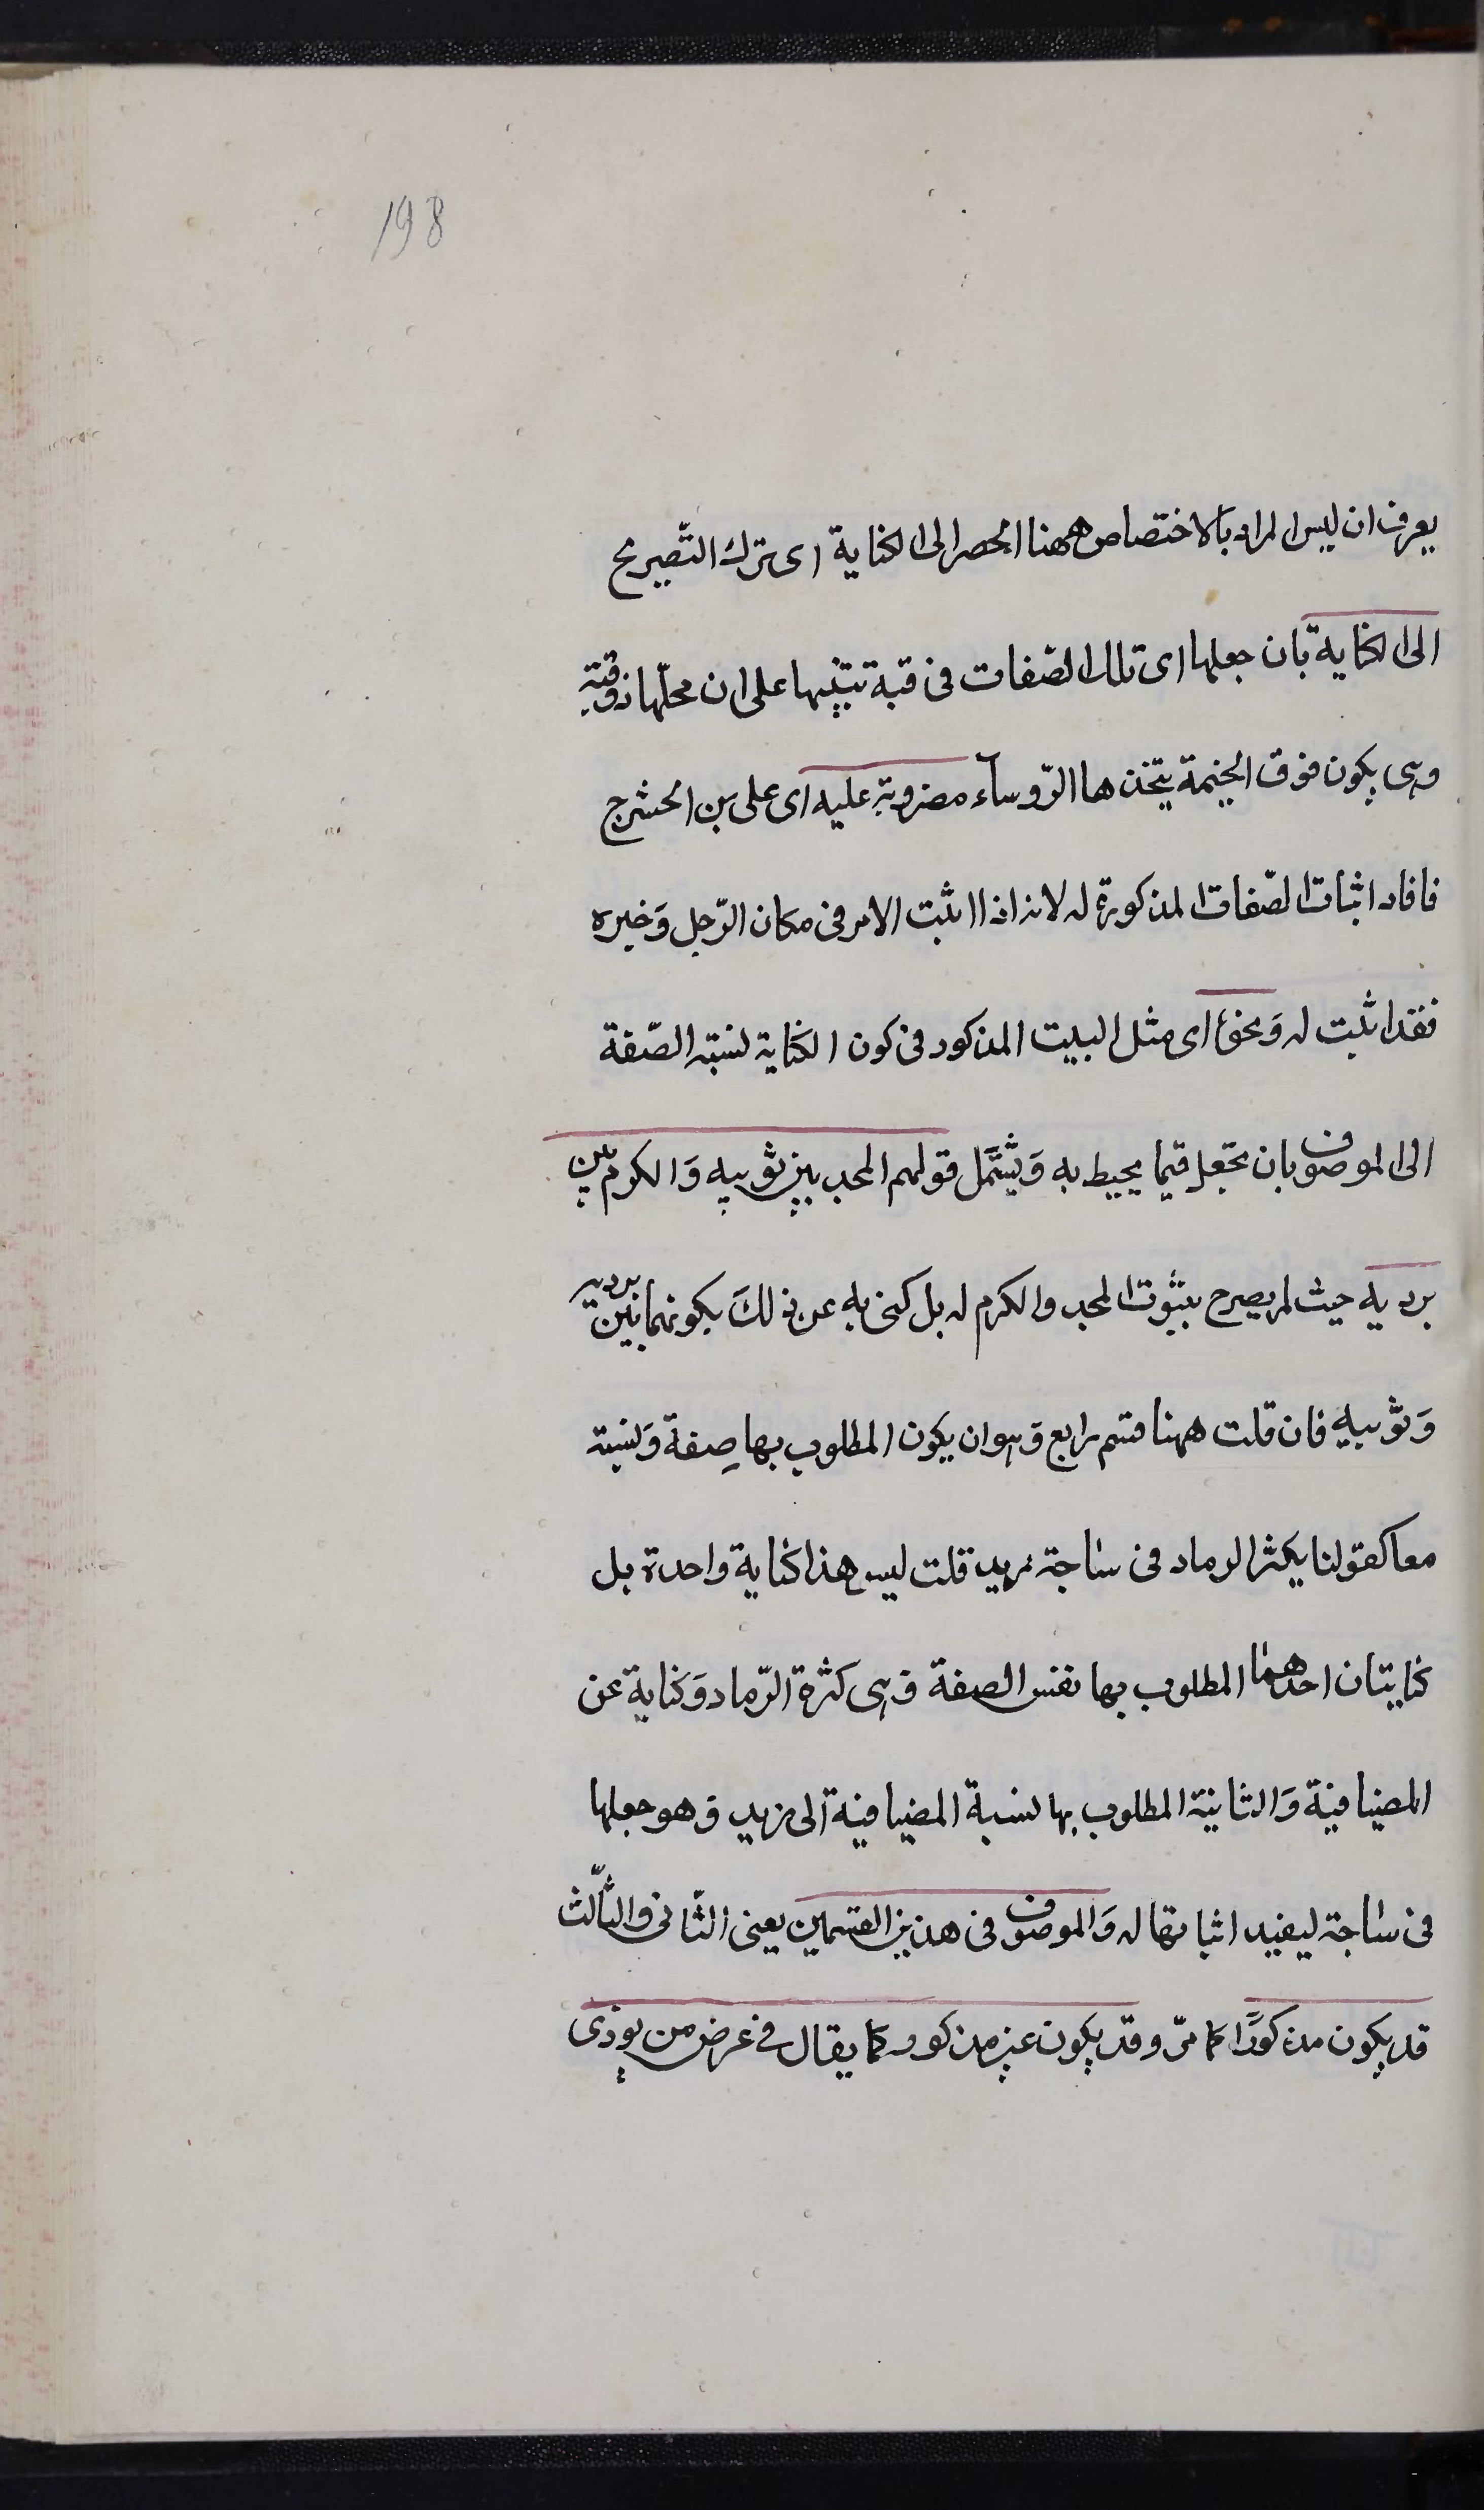 198
يعرف ان ليس المراد بالاختصاص ههنا الحصر الى الكناية اى ترك التّصريح
الى الكناية بان جعلها اى تلك الصّفات فى قبة تنبيها على ان محلّها ذو قبّة
وهى يكون فوق الخيمة يتخذها الرّوسآء مضروبة عليه اى على بن الحشرج
فافاد اثبات الصّفات المذكورة له لانه اذا اثبت الامر فى مكان الرّجل وَحيزه
فقد اثبت له وَنحوه اى مثل البيت المذكور فى كون الكناية لنسبة الصّفة
الى الموصوف بان تجعل فيما يحيط به وَيشتمل قولهم المجد بين ثوبيه وَالكرم بين
برديه حيث لم يصرح بثبوت المجد والكرم له بل كنى به عن ذلكَ بكونهما بين برديه
وَثوبيه فان قلت ههنا قسم رابع وَهو ان يكون المطلوب بها صِفة وَنسبة
معا كقولنا يكثر الرماد فى ساجة زيد قلت ليس هذا كناية واحدة بل
كنايتان احدهما المطلوب بها نفس الصفة وَهى كثرة الرّماد وَكناية عن
المضيافية وَالثانية المطلوب بها نسبة المضيافية الى زيد وَهو جعلها
فى ساجة ليفيد اثباتها له وَالموصوف فى هذين القسمين يعنى الثّانى والثّالث
قد يكون مذكورًا كما مرّ وقد يكون غير مذكور كما يقال فى عرض من يوذى